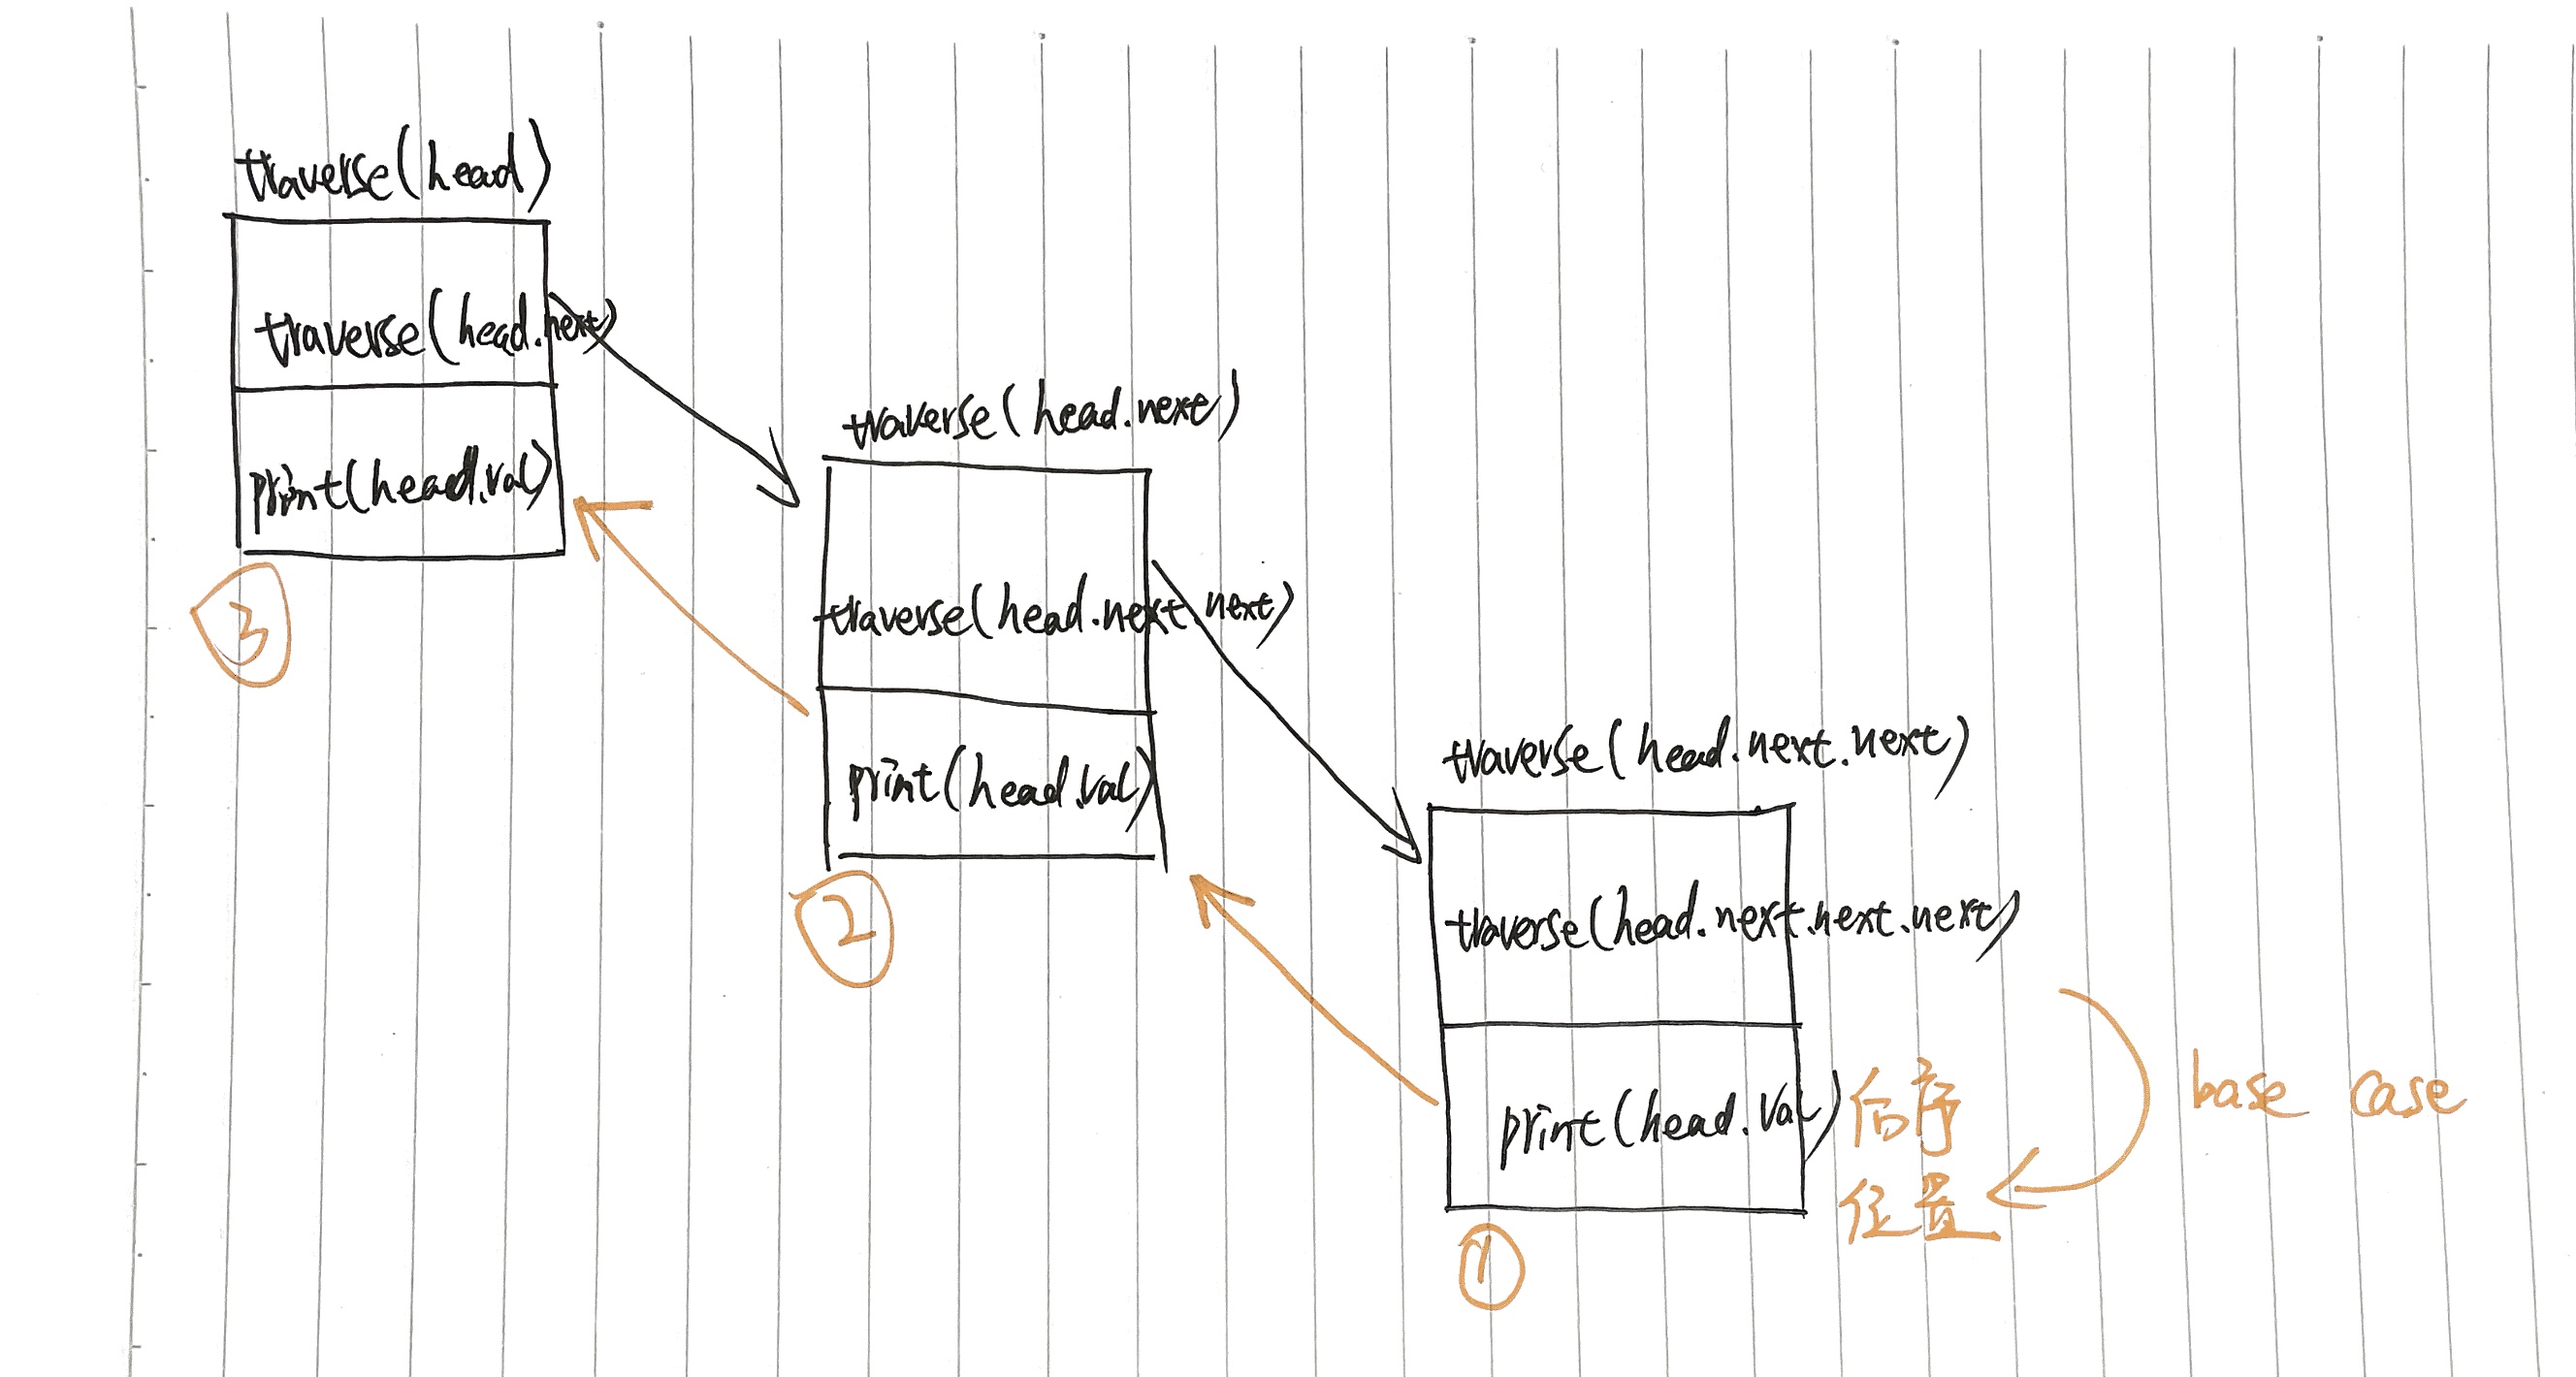 traverse(head)
traverse(head.next)
print(head.val)
3
traverse(head.next)
traverse(head.next.next)
print(head.val)
2
traverse(head.next.next)
traverse(head.next.next.next)
print(head.val)
后序
位置
base case
1